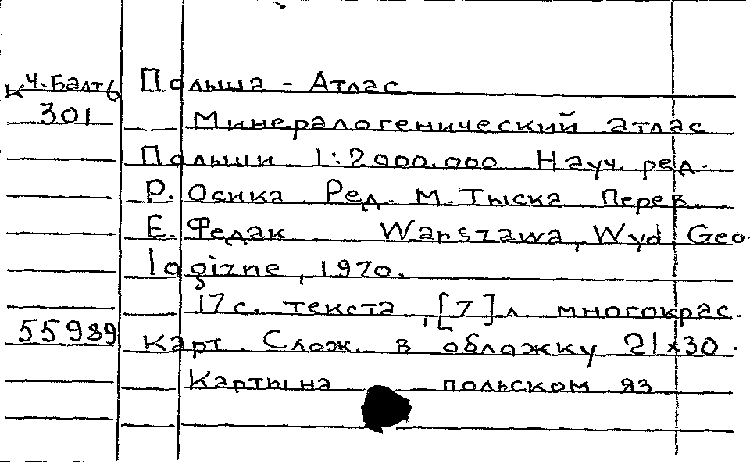 к Ч. Балт 6 Польша - Атлас
301 Минералогенический атлас
Польши 1:2000.000 Науч. ред.
Р. Осика Ред. М. Тыска Перев.
Е. Федак Warszawa, Wyd Geo-
logizne, 1970.
17 с. текста, [7] л многокрас.
55989 карт. Слож. в обложку 21x30.
Карты на польском яз